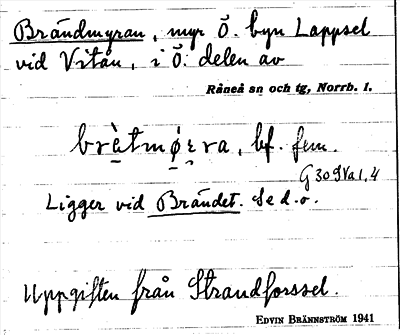 Brändmyran, myr Ö. byn Lappsel
vid Vitån, i Ö. delen av
Råneå sn och tg, Norrb. l.
bf. fem.
G 309 Va 1,4
Ligger vid Brändet. Se d.o.
Uppgiften från Strandforssel.
EDVIN BRÄNNSTRÖM 1941